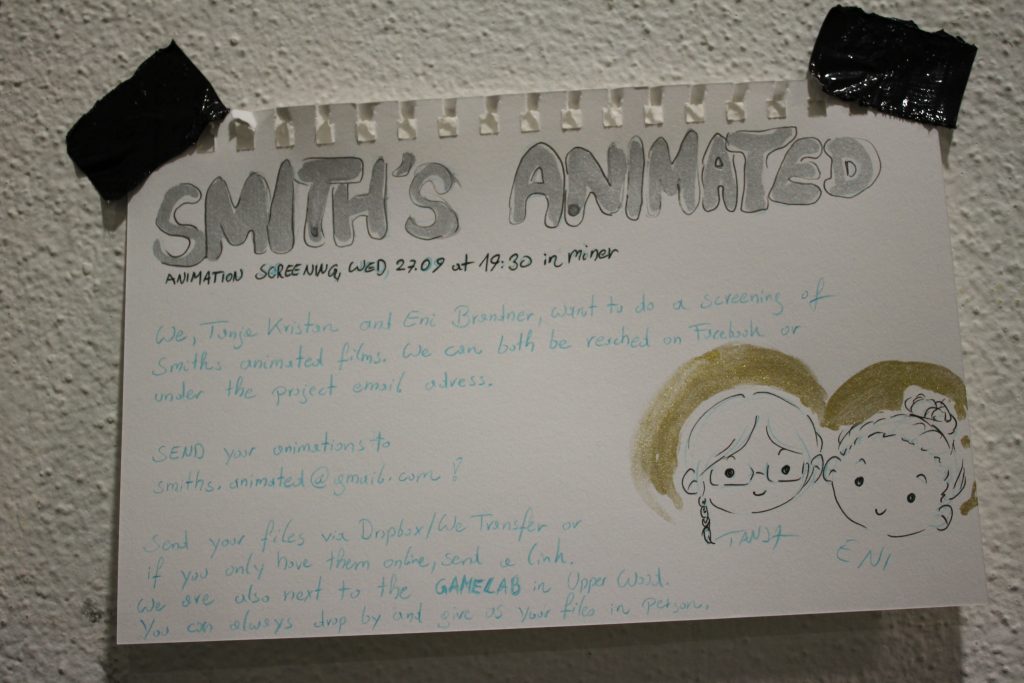 SMITH'S ANIMATED
ANIMATION SCREENING, WED, 27.09 at 19:30 in miner
We, Tanja Kristan and Eni Brandner, want to do a screening of
Smiths animated films. We can both be reached on Facebook or
under the project email adress.
SEND your animations to
smiths.animated@gmail.com !
Send your files via Dropbox/We Transfer or
if you only have them online, send a link.
We are also next to the GAMELAB in Upper Wood.
You can always drop by and give us your files in person.
TANJA
ENI